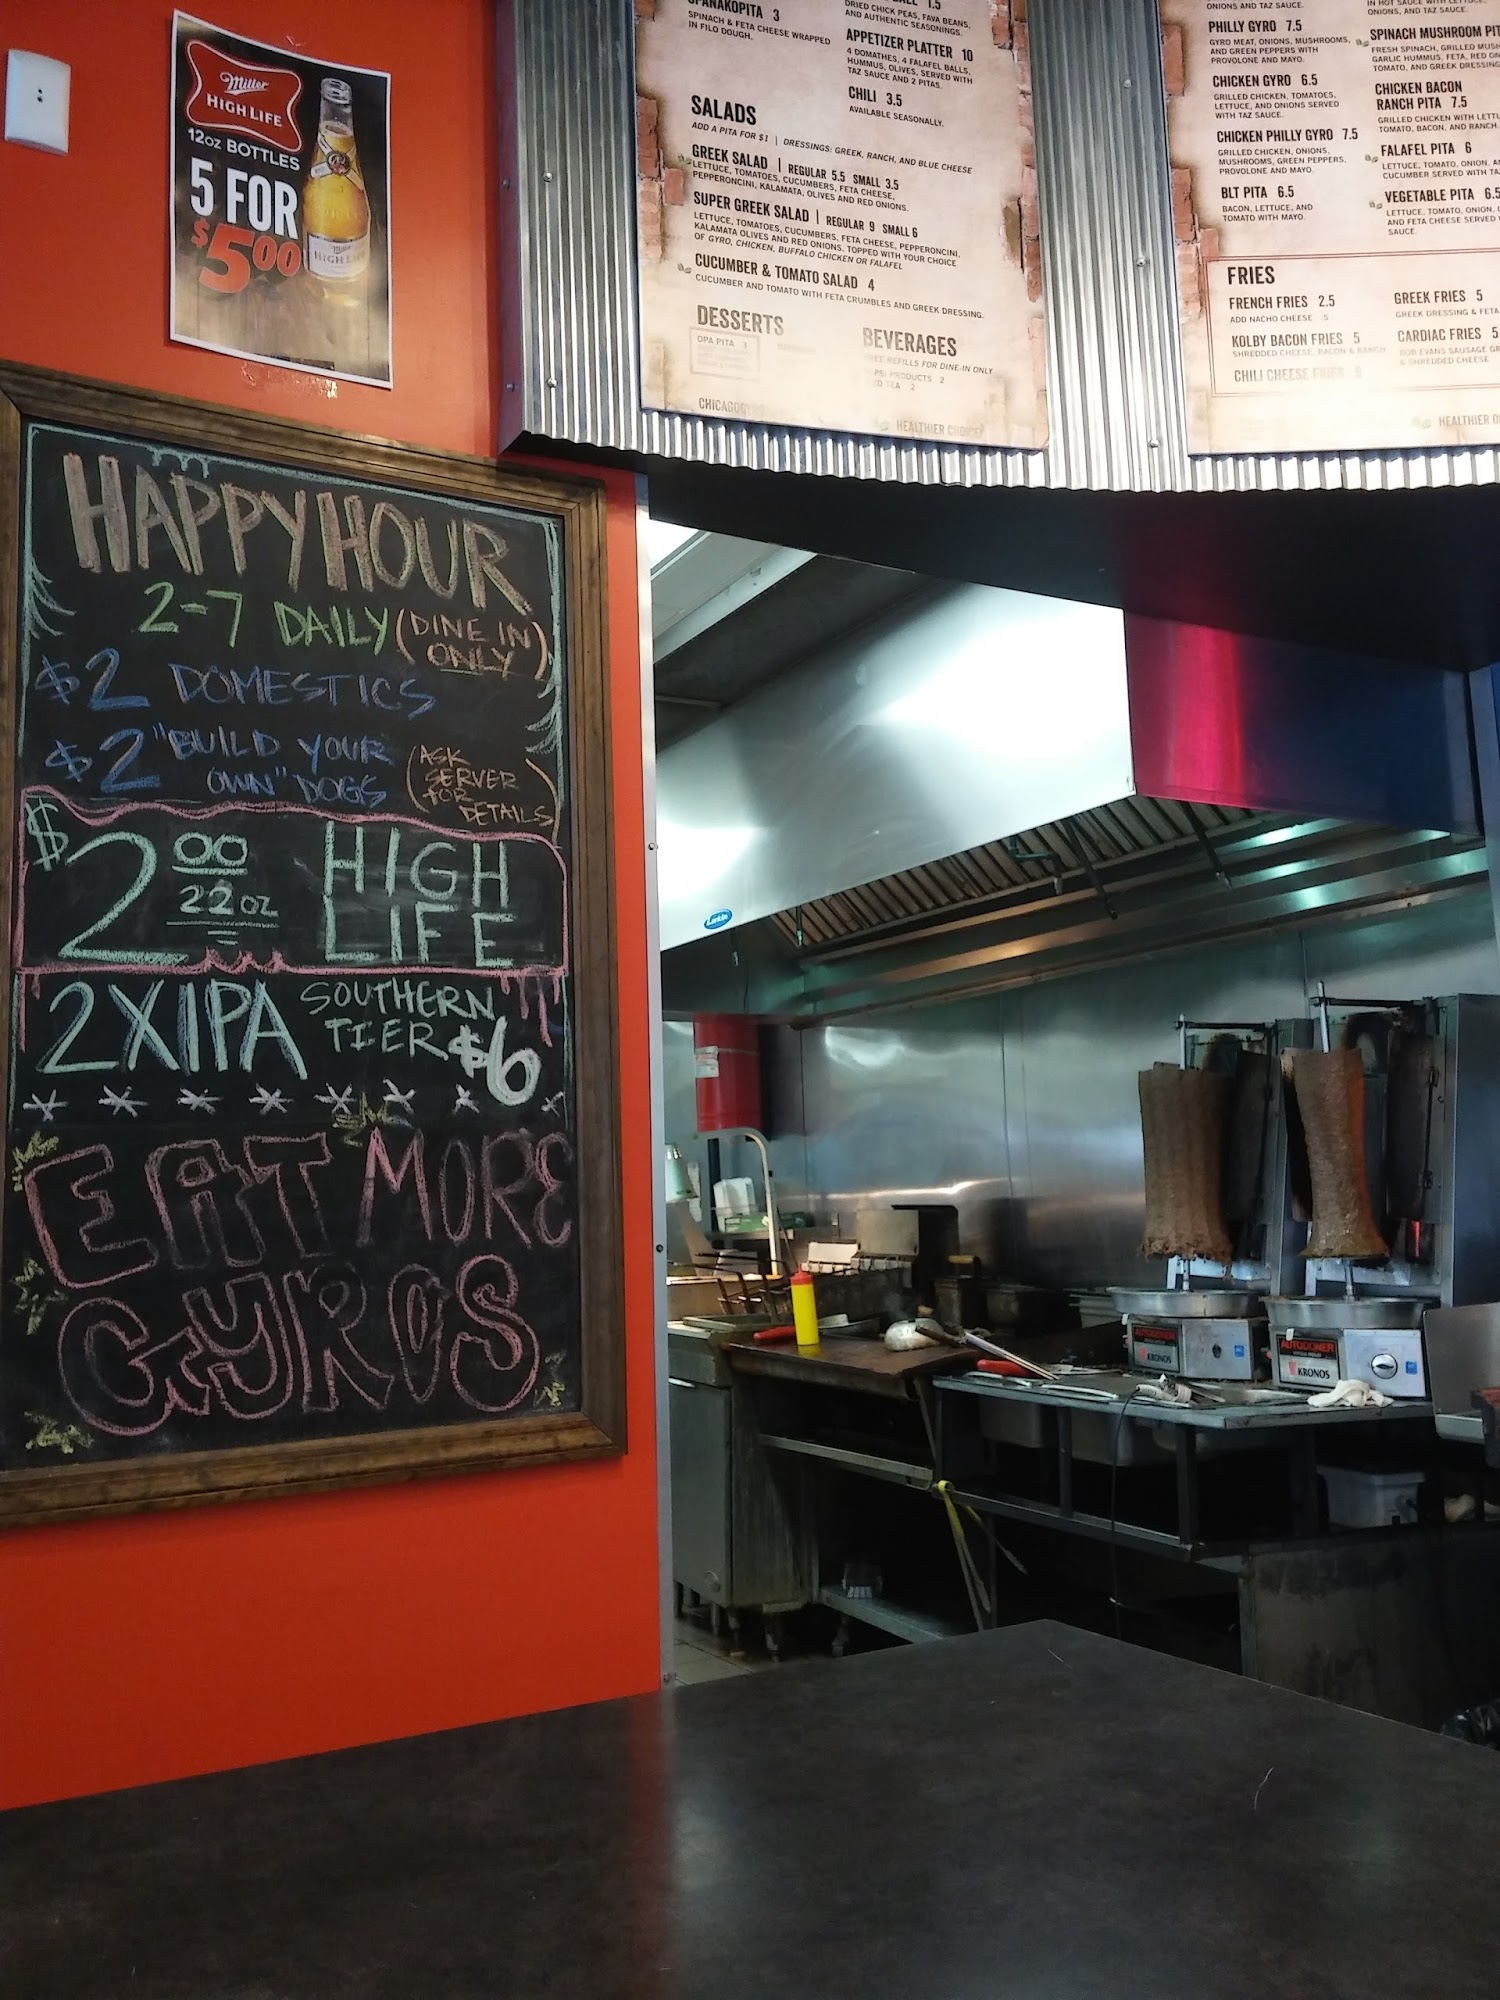 Miller
HIGH LIFE
12oz BOTTLES
5 FOR
$5.00
HAPPY HOUR
2-7 DAILY (DINE IN ONLY)
$2 DOMESTICS
$2 "BUILD YOUR OWN" DOGS (ASK SERVER FOR DETAILS)
$2.00 22oz HIGH LIFE
2XIPA SOUTHERN TIER $6
EAT MORE
GYROS
SPANAKOPITA 3
SPINACH & FETA CHEESE WRAPPED
IN FILO DOUGH.
1.5
DRIED CHICK PEAS, FAVA BEANS,
AND AUTHENTIC SEASONINGS.
APPETIZER PLATTER 10
4 DOMATHES, 4 FALAFEL BALLS,
HUMMUS, OLIVES, SERVED WITH
TAZ SAUCE AND 2 PITAS.
CHILI 3.5
AVAILABLE SEASONALLY.
SALADS
ADD A PITA FOR $1 | DRESSINGS: GREEK, RANCH, AND BLUE CHEESE
GREEK SALAD | REGULAR 5.5 SMALL 3.5
LETTUCE, TOMATOES, CUCUMBERS, FETA CHEESE,
PEPPERONCINI, KALAMATA, OLIVES AND RED ONIONS.
SUPER GREEK SALAD | REGULAR 9 SMALL 6
LETTUCE, TOMATOES, CUCUMBERS, FETA CHEESE, PEPPERONCINI,
KALAMATA OLIVES AND RED ONIONS. TOPPED WITH YOUR CHOICE
OF GYRO, CHICKEN, BUFFALO CHICKEN OR FALAFEL
CUCUMBER & TOMATO SALAD 4
CUCUMBER AND TOMATO WITH FETA CRUMBLES AND GREEK DRESSING.
DESSERTS
OPA PITA 3
BEVERAGES
FREE REFILLS FOR DINE-IN ONLY
PRODUCTS 2
TEA 2
HEALTHIER CHOICE
ONIONS AND TAZ SAUCE.
PHILLY GYRO 7.5
GYRO MEAT, ONIONS, MUSHROOMS,
AND GREEN PEPPERS WITH
PROVOLONE AND MAYO.
CHICKEN GYRO 6.5
GRILLED CHICKEN, TOMATOES,
LETTUCE, AND ONIONS SERVED
WITH TAZ SAUCE.
CHICKEN PHILLY GYRO 7.5
GRILLED CHICKEN, ONIONS,
MUSHROOMS, GREEN PEPPERS,
PROVOLONE AND MAYO.
BLT PITA 6.5
BACON, LETTUCE, AND
TOMATO WITH MAYO.
ONIONS, AND TAZ SAUCE.
SPINACH MUSHROOM PIT
FRESH SPINACH, GRILLED
GARLIC HUMMUS, FETA, RED
TOMATO, AND GREEK DRESSING
CHICKEN BACON
RANCH PITA 7.5
GRILLED CHICKEN WITH
TOMATO, BACON, AND RANCH.
FALAFEL PITA 6
LETTUCE, TOMATO, ONION,
CUCUMBER SERVED WITH
VEGETABLE PITA 6.5
LETTUCE, TOMATO, ONION,
AND FETA CHEESE SERVED
SAUCE.
FRIES
FRENCH FRIES 2.5
ADD NACHO CHEESE .5
KOLBY BACON FRIES 5
SHREDDED CHEESE, BACON & RANCH
CHILI CHEESE FRIES
GREEK FRIES 5
GREEK DRESSING & FETA
CARDIAC FRIES 5
BOB EVANS SAUSAGE
& SHREDDED CHEESE
HEALTHIER
Larkin
AUTODONER
KRONOS
AUTODONER
KRONOS